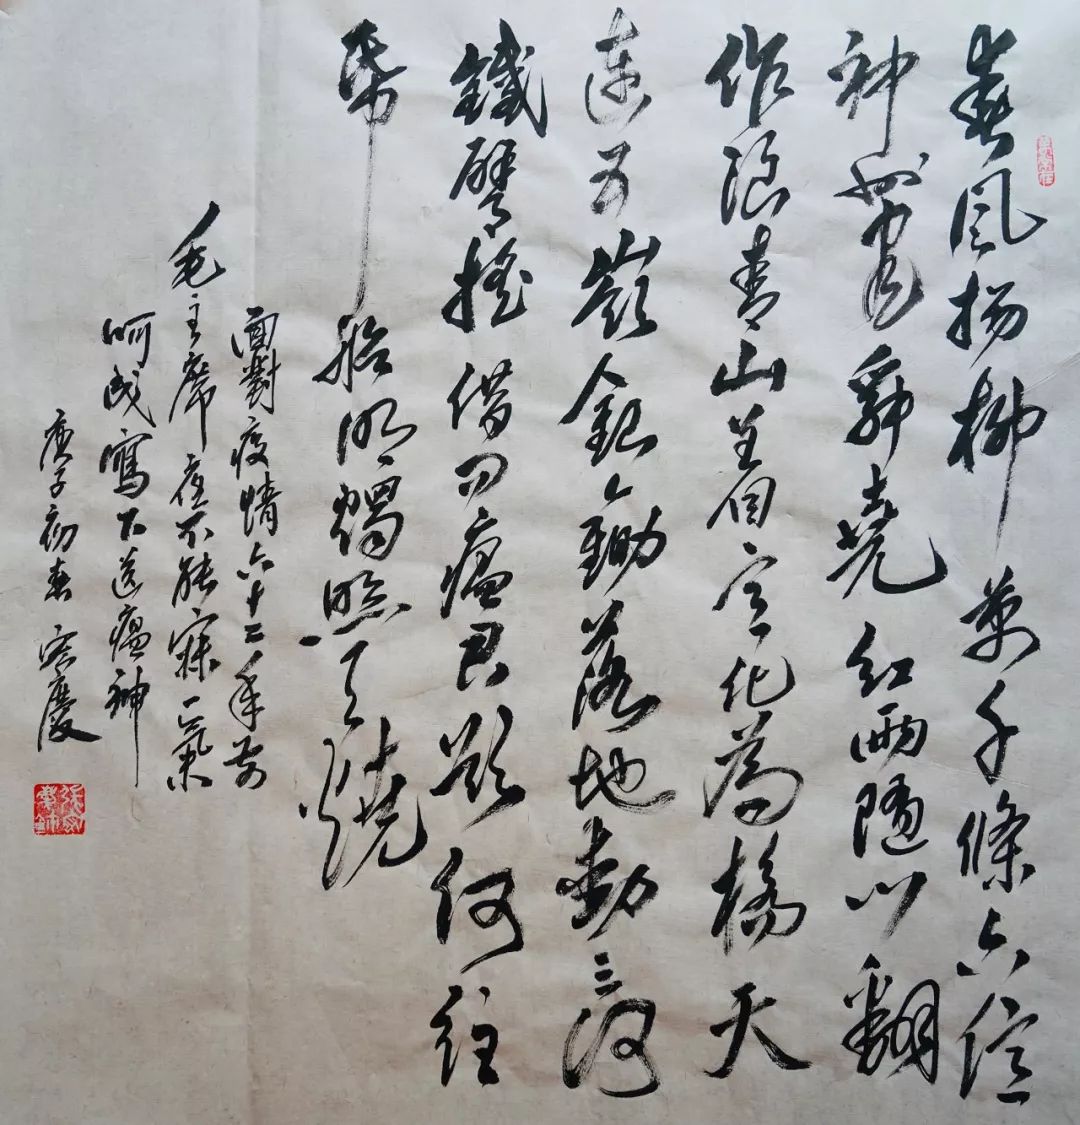 春風揚柳萬千條六億
神州盡舜堯紅雨隨心翻
作浪青山着意化為橋天
連五嶺銀鋤落地動三河
鐵臂搖借問瘟君欲何往
帋船明燭照天燒
面對疫情六十二年前
毛主席夜不能寐一氣
呵成寫下送瘟神
庚子初春